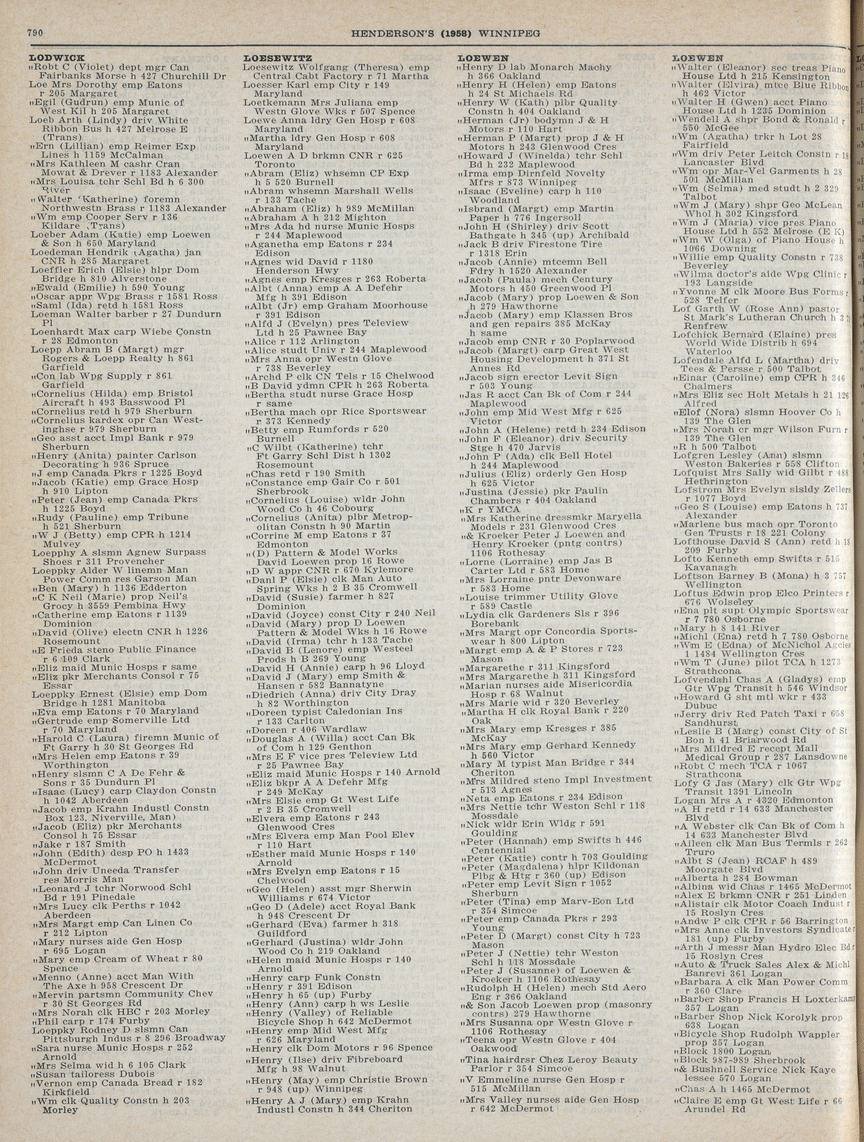 790
HENDERSON'S (1958) WINNIPEG
LODWICK
„Robt C (Violet) dept mgr Can
Fairbanks Morse h 427 Churchill Dr
Loe Mrs Dorothy emp Eatons
r 205 Margaret
„Egil (Gudrun) emp Munic of
West Kil h 205 Margaret
Loeb Arth (Lindy) driv White
Ribbon Bus h 427 Melrose E
(Trans)
„Ern (Lillian) emp Reimer Exp
Lines h 1159 McCalman
„Mrs Kathleen M cashr Cran
Mowat & Drever r 1183 Alexander
„Mrs Louisa tchr Schl Bd h 6 300
River
„Walter (Katherine) foremn
Northwestn Brass r 1183 Alexander
„Wm emp Cooper Serv r 136
Kildare (Trans)
Loeber Adam (Katie) emp Loewen
& Son h 650 Maryland
Loedeman Hendrik (Agatha) jan
CNR h 285 Margaret
Loeffler Erich (Elsie) hlpr Dom
Bridge h 810 Alverstone
„Ewald (Emilie) h 590 Young
„Oscar appr Wpg Brass r 1581 Ross
„Saml (Ida) retd h 1581 Ross
Loeman Walter barber r 27 Dundurn
Pl
Loenhardt Max carp Wiebe Constn
r 28 Edmonton
Loepp Abram B (Margt) mgr
Rogers & Loepp Realty h 861
Garfield
„Con lab Wpg Supply r 861
Garfield
„Cornelius (Hilda) emp Bristol
Aircraft h 493 Basswood Pl
„Cornelius retd h 979 Sherburn
„Cornelius kardex opr Can West-
inghse r 979 Sherburn
„Geo asst acct Impl Bank r 979
Sherburn
„Henry (Anita) painter Carlson
Decorating h 936 Spruce
„J emp Canada Pkrs r 1225 Boyd
„Jacob (Katie) emp Grace Hosp
h 910 Lipton
„Peter (Jean) emp Canada Pkrs
h 1225 Boyd
„Rudy (Pauline) emp Tribune
h 521 Sherburn
„W J (Betty) emp CPR h 1214
Mulvey
Loepphy A slsmn Agnew Surpass
Shoes r 311 Provencher
Loeppky Alder W linemn Man
Power Comm res Garson Man
„Ben (Mary) h 1136 Edderton
„C K Neil (Marie) prop Neil's
Grocy h 3559 Pembina Hwy
„Catherine emp Eatons r 1139
Dominion
„David (Olive) electn CNR h 1226
Rosemount
„E Frieda steno Public Finance
r 6 109 Clark
„Eliz maid Munic Hosps r same
„Eliz pkr Merchants Consol r 75
Essar
Loeppky Ernest (Elsie) emp Dom
Bridge h 1281 Manitoba
„Eva emp Eatons r 70 Maryland
„Gertrude emp Somerville Ltd
r 70 Maryland
„Harold C (Laura) firemn Munic of
Ft Garry h 30 St Georges Rd
„Mrs Helen emp Eatons r 39
Worthington
„Henry slsmn C A De Fehr &
Sons r 35 Dundurn Pl
„Isaac (Lucy) carp Claydon Constn
h 1042 Aberdeen
„Jacob emp Krahn Industl Constn
Box 123, Niverville, Man)
„Jacob (Eliz) pkr Merchants
Consol h 75 Essar
„Jake r 187 Smith
„John (Edith) desp PO h 1433
McDermot
„John driv Uneeda Transfer
res Morris Man
„Leonard J tchr Norwood Schl
Bd r 191 Pinedale
„Mrs Lucy clk Perths r 1042
Aberdeen
„Mrs Margt emp Can Linen Co
r 212 Lipton
„Mary nurses aide Gen Hosp
r 695 Logan
„Mary emp Cream of Wheat r 80
Spence
„Menno (Anne) acct Man With
The Axe h 958 Crescent Dr
„Mervin partsmn Community Chev
r 30 St Georges Rd
„Mrs Norah clk HBC r 203 Morley
„Phil carp r 174 Furby
Loeppky Rodney D slsmn Can
Pittsburgh Indus r 8 296 Broadway
„Sara nurse Munic Hosps r 252
Arnold
„Mrs Selma wid h 6 105 Clark
„Susan tailoress Dubois
„Vernon emp Canada Bread r 182
Kirkfield
„Wm clk Quality Constn h 203
Morley
LOESEWITZ
Loesewitz Wolfgang (Theresa) emp
Central Cabt Factory r 71 Martha
Loesser Karl emp City r 149
Maryland
Loetkemann Mrs Juliana emp
Westn Glove Wks r 507 Spence
Loewe Anna ldry Gen Hosp r 608
Maryland
„Martha ldry Gen Hosp r 608
Maryland
Loewen A D brkmn CNR r 625
Toronto
„Abram (Eliz) whsemn CP Exp
h 5 520 Burnell
„Abram whsemn Marshall Wells
r 133 Tache
„Abraham (Eliz) h 989 McMillan
„Abraham A h 212 Mighton
„Mrs Ada hd nurse Munic Hosps
r 244 Maplewood
„Aganetha emp Eatons r 234
Edison
„Agnes wid David r 1180
Henderson Hwy
„Agnes emp Kresges r 263 Roberta
„Albt (Anna) emp A A Defehr
Mfg h 391 Edison
„Albt (Jr) emp Graham Moorhouse
r 391 Edison
„Alfd J (Evelyn) pres Teleview
Ltd h 25 Pawnee Bay
„Alice r 112 Arlington
„Alice studt Univ r 244 Maplewood
„Mrs Anna opr Westn Glove
r 738 Beverley
„Archd P clk CN Tels r 15 Chelwood
„B David ydmn CPR h 263 Roberta
„Bertha studt nurse Grace Hosp
r same
„Bertha mach opr Rice Sportswear
r 373 Kennedy
„Betty emp Rumfords r 520
Burnell
„C Wilbt (Katherine) tchr
Ft Garry Schl Dist h 1302
Rosemount
„Chas retd r 190 Smith
„Constance emp Gair Co r 501
Sherbrook
„Cornelius (Louise) wldr John
Wood Co h 46 Cobourg
„Cornelius (Anita) plbr Metrop-
olitan Constn h 90 Martin
„Corrine M emp Eatons r 37
Edmonton
„(D) Pattern & Model Works
David Loewen prop 16 Rowe
„D W appr CNR r 670 Kylemore
„Danl P (Elsie) clk Man Auto
Spring Wks h 2 B 35 Cromwell
„David (Susie) farmer h 827
Dominion
„David (Joyce) const City r 240 Neil
„David (Mary) prop D Loewen
Pattern & Model Wks h 16 Rowe
„David (Irma) tchr h 133 Tache
„David B (Lenore) emp Westeel
Prods h B 269 Young
„David H (Annie) carp h 96 Lloyd
„David J (Mary) emp Smith &
Hansen r 582 Bannatyne
„Diedrich (Anna) driv City Dray
h 82 Worthington
„Doreen typist Caledonian Ins
r 133 Carlton
„Doreen r 406 Wardlaw
„Douglas A (Willa) acct Can Bk
of Com h 129 Genthon
„Mrs E F vice pres Teleview Ltd
r 25 Pawnee Bay
„Eliz maid Munic Hosps r 140 Arnold
„Eliz bkpr A A Defehr Mfg
r 249 McKay
„Mrs Elsie emp Gt West Life
r 2 B 35 Cromwell
„Elvera emp Eatons r 243
Glenwood Cres
„Mrs Elvera emp Man Pool Elev
r 110 Hart
„Esther maid Munic Hosps r 140
Arnold
„Mrs Evelyn emp Eatons r 15
Chelwood
„Geo (Helen) asst mgr Sherwin
Williams r 674 Victor
„Geo D (Adele) acct Royal Bank
h 948 Crescent Dr
„Gerhard (Eva) farmer h 318
Guildford
„Gerhard (Justina) wldr John
Wood Co h 219 Oakland
„Helen maid Munic Hosps r 140
Arnold
„Henry carp Funk Constn
„Henry r 391 Edison
„Henry h 65 (up) Furby
„Henry (Ann) carp h ws Leslie
„Henry (Valley) of Reliable
Bicycle Shop h 642 McDermot
„Henry emp Mid West Mfg
r 626 Maryland
„Henry clk Dom Motors r 96 Spence
„Henry (Ilse) driv Fibreboard
Mfg h 98 Walnut
„Henry (May) emp Christie Brown
r 948 (up) Winnipeg
„Henry A J (Mary) emp Krahn
Industl Constn h 344 Cheriton
LOEWEN
„Henry D lab Monarch Machy
h 366 Oakland
„Henry H (Helen) emp Eatons
h 24 St Michaels Rd
„Henry W (Kath) plbr Quality
Constn h 404 Oakland
„Herman (Jr) bodymn J & H
Motors r 110 Hart
„Herman P (Margt) prop J & H
Motors h 243 Glenwood Cres
„Howard J (Winelda) tchr Schl
Bd h 232 Maplewood
„Irma emp Dirnfeld Novelty
Mfrs r 873 Winnipeg
„Isaac (Eveline) carp h 110
Woodland
„Isbrand (Margt) emp Martin
Paper h 776 Ingersoll
„John H (Shirley) driv Scott
Bathgate h 345 (up) Archibald
„Jack B driv Firestone Tire
r 1318 Erin
„Jacob (Annie) mtcemn Bell
Fdry h 1520 Alexander
„Jacob (Paula) mech Century
Motors h 450 Greenwood Pl
„Jacob (Mary) prop Loewen & Son
h 279 Hawthorne
„Jacob (Mary) emp Klassen Bros
and gen repairs 385 McKay
h same
„Jacob emp CNR r 30 Poplarwood
„Jacob (Margt) carp Great West
Housing Development h 371 St
Annes Rd
„Jacob sign erector Levit Sign
r 503 Young
„Jas R acct Can Bk of Com r 244
Maplewood
„John emp Mid West Mfg r 625
Victor
„John A (Helene) retd h 234 Edison
„John F (Eleanor) driv Security
Stge h 470 Jarvis
„John P (Ada) clk Bell Hotel
h 244 Maplewood
„Julius (Eliz) orderly Gen Hosp
h 625 Victor
„Justina (Jessie) pkr Paulin
Chambers r 404 Oakland
„K r YMCA
„Mrs Katherine dressmkr Maryella
Models r 231 Glenwood Cres
„& Kroeker Peter J Loewen and
Henry Kroeker (pntg contrs)
1106 Rothesay
„Lorne (Lorraine) emp Jas B
Carter Ltd r 583 Home
„Mrs Lorraine pntr Devonware
r 583 Home
„Louise trimmer Utility Glove
r 589 Castle
„Lydia clk Gardeners Sls r 396
Borebank
„Mrs Margt opr Concordia Sports-
wear h 800 Lipton
„Margt emp A & P Stores r 723
Mason
„Margarethe r 311 Kingsford
„Mrs Margarethe h 311 Kingsford
„Marian nurses aide Misericordia
Hosp r 68 Walnut
„Mrs Marie wid r 320 Beverley
„Martha H clk Royal Bank r 220
Oak
„Mrs Mary emp Kresges r 385
McKay
„Mrs Mary emp Gerhard Kennedy
h 560 Victor
„Mary M typist Man Bridge r 344
Cheriton
„Mrs Mildred steno Impl Investment
r 513 Agnes
„Neta emp Eatons r 234 Edison
„Mrs Nettie tchr Weston Schl r 118
Mossdale
„Nick wldr Erin Wldg r 591
Goulding
„Peter (Hannah) emp Swifts h 446
Centennial
„Peter (Katie) contr h 703 Goulding
„Peter (Magdalena) hlpr Kildonan
Plbg & Htg r 360 (up) Edison
„Peter emp Levit Sign r 1052
Sherburn
„Peter (Tina) emp Marv-Eon Ltd
r 354 Simcoe
„Peter emp Canada Pkrs r 293
Young
„Peter D (Margt) const City h 723
Mason
„Peter J (Nettie) tchr Weston
Schl h 118 Mossdale
„Peter J (Susanne) of Loewen &
Kroeker h 1106 Rothesay
„Rudolph H (Helen) mech Std Aero
Eng r 366 Oakland
„& Son Jacob Loewen prop (masonry
contrs) 279 Hawthorne
„Mrs Susanna opr Westn Glove r
1106 Rothesay
„Teena opr Westn Glove r 404
Oakwood
„Tina hairdrsr Chez Leroy Beauty
Parlor r 354 Simcoe
„V Emmeline nurse Gen Hosp r
515 McMillan
„Mrs Valley nurses aide Gen Hosp
r 642 McDermot
LOEWEN
„Walter (Eleanor) sec treas Piano
House Ltd h 215 Kensington
„Walter (Elvira) mtce Blue Ribbon
h 462 Victor
„Walter H (Gwen) acct Piano
House Ltd h 1235 Dominion
„Wendell A shpr Bond & Ronald r
550 McGee
„Wm (Agatha) trkr h Lot 28
Fairfield
„Wm driv Peter Leitch Constn r
Lancaster Blvd
„Wm opr Mar-Vel Garments h 28
501 McMillan
„Wm (Selma) med studt h 2 329
Talbot
„Wm J (Mary) shpr Geo McLean
Whol h 302 Kingsford
„Wm J (Maria) vice pres Piano
House Ltd h 552 Melrose (E K)
„Wm W (Olga) of Piano House h
1066 Downing
„Willie emp Quality Constn r 738
Beverley
„Wilma doctor's aide Wpg Clinic r
193 Langside
„Yvonne M clk Moore Bus Forms r
528 Telfer
Lof Garth W (Rose Ann) pastor
St Mark's Lutheran Church h
Renfrew
Lofchick Bernard (Elaine) pres
World Wide Distrib h 694
Waterloo
Lofendale Alfd L (Martha) driv
Tees & Persse r 500 Talbot
„Einar (Caroline) emp CPR h 346
Chalmers
„Mrs Eliz sec Holt Metals h 21 126
Alfred
„Elof (Nora) slsmn Hoover Co h
139 The Glen
„Mrs Norah cr mgr Wilson Furn r
139 The Glen
„R h 500 Talbot
Lofgren Lesley (Ann) slsmn
Weston Bakeries r 558 Clifton
Lofquist Mrs Sally wid Gilbt r 488
Hethrington
Lofstrom Mrs Evelyn slsldy Zellers
r 1077 Boyd
„Geo S (Louise) emp Eatons h 737
Alexander
„Marlene bus mach opr Toronto
Gen Trusts r 18 221 Colony
Lofthouse David S (Ann) retd h 18
209 Furby
Lofto Kenneth emp Swifts r 515
Kavanagh
Loftson Barney B (Mona) h 3 757
Wellington
Loftus Edwin prop Elco Printers r
676 Wolseley
„Ena plt supt Olympic Sportswear
r 7 780 Osborne
„Mary h 8 141 River
„Michl (Ena) retd h 7 780 Osborne
„Wm E (Edna) of McNichol Agcies
1 1484 Wellington Cres
„Wm T (June) pilot TCA h 1273
Strathcona
Lofvendahl Chas A (Gladys) emp
Gtr Wpg Transit h 546 Windsor
„Howard G sht mtl wkr r 433
Dubuc
„Jerry driv Red Patch Taxi r 658
Sandhurst
„Leslie B (Marg) const City of St
Bon h 41 Briarwood Rd
„Mrs Mildred E recept Mall
Medical Group r 287 Lansdowne
„Robt C mech TCA r 1067
Strathcona
Lofy G Jas (Mary) clk Gtr Wpg
Transit 1391 Lincoln
Logan Mrs A r 4320 Edmonton
„A H retd r 14 633 Manchester
Blvd
„A Webster clk Can Bk of Com h
14 633 Manchester Blvd
„Aileen clk Man Bus Termls r 262
Truro
„Albt S (Jean) RCAF h 489
Moorgate Blvd
„Alberta h 284 Bowman
„Albina wid Chas r 1465 McDermot
„Alex E brkmn CNR r 251 Linden
„Alistair clk Motor Coach Indust r
15 Roslyn Cres
„Andw P clk CPR r 56 Barrington
„Mrs Anne clk Investors Syndicate r
181 (up) Furby
„Arth J messr Man Hydro Elec Bd r
15 Roslyn Cres
„Auto & Truck Sales Alex & Michl
Banrevi 361 Logan
„Barbara A clk Man Power Comm
r 360 Clare
„Barber Shop Francis H Loxterkamp
357 Logan
„Barber Shop Nick Korolyk prop
638 Logan
„Bicycle Shop Rudolph Wappler
prop 357 Logan
„Block 1800 Logan
„Block 987-989 Sherbrook
„& Bushnell Service Nick Kaye
lessee 570 Logan
„Chas A h 1465 McDermot
„Claire E emp Gt West Life r 66
Arundel Rd